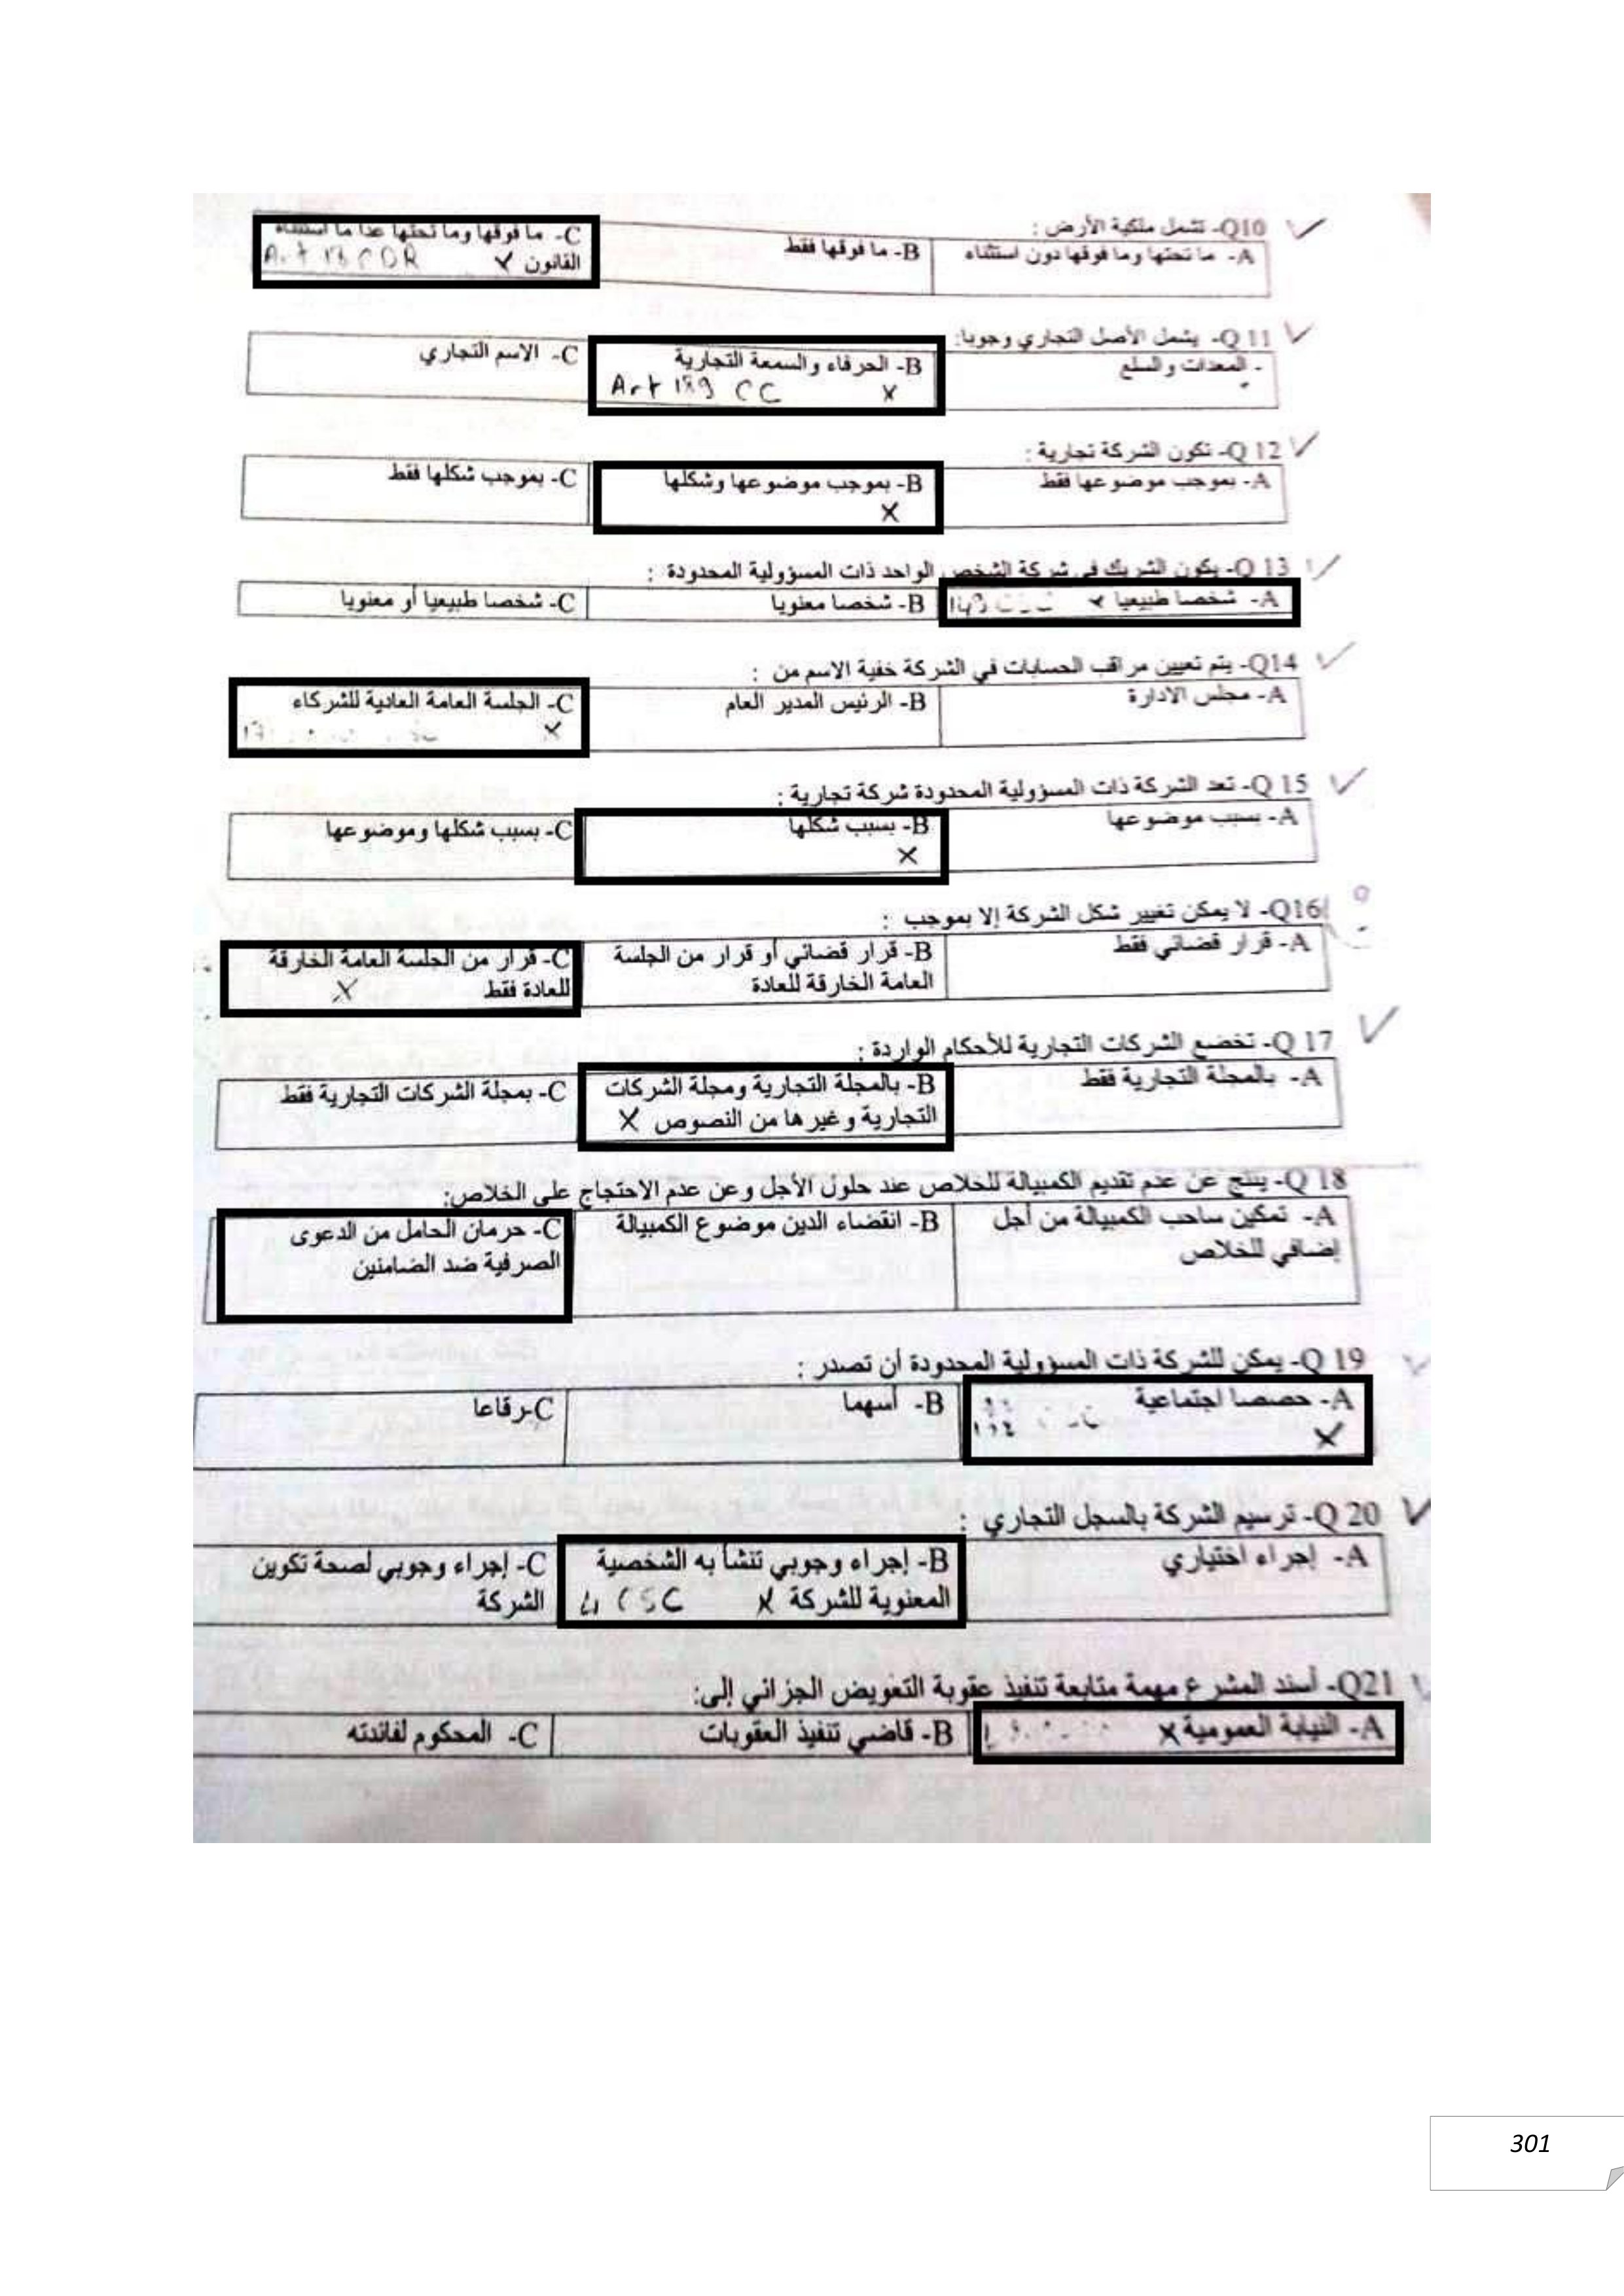 Q10- تشمل ملكية الأرض :
A- ما تحتها وما فوقها دون استثناء
B- ما فوقها فقط
C- ما فوقها وما تحتها عدا ما استثناه
القانون x Art CDR
Q 11- يشمل الأصل التجاري وجوبا:
- المعدات والسلع
B- الحرفاء والسمعة التجارية
Art 189 CC x
C- الاسم التجاري
Q 12- تكون الشركة تجارية :
A- بموجب موضوعها فقط
B- بموجب موضوعها وشكلها
x
C- بموجب شكلها فقط
Q 13- يكون الشريك في شركة الشخص الواحد ذات المسؤولية المحدودة :
A- شخصا طبيعيا x
B- شخصا معنويا
C- شخصا طبيعيا أو معنويا
Q14- يتم تعيين مراقب الحسابات في الشركة خفية الاسم من :
A- مجلس الادارة
B- الرئيس المدير العام
C- الجلسة العامة العادية للشركاء
x
Q 15- تعد الشركة ذات المسؤولية المحدودة شركة تجارية :
A- بسبب موضوعها
B- بسبب شكلها
x
C- بسبب شكلها وموضوعها
Q16- لا يمكن تغيير شكل الشركة إلا بموجب :
A- قرار قضائي فقط
B- قرار قضائي أو قرار من الجلسة
العامة الخارقة للعادة
C- قرار من الجلسة العامة الخارقة
للعادة فقط x
Q 17- تخضع الشركات التجارية للأحكام الواردة :
A- بالمجلة التجارية فقط
B- بالمجلة التجارية ومجلة الشركات
التجارية وغيرها من النصوص x
C- بمجلة الشركات التجارية فقط
Q 18- ينتج عن عدم تقديم الكمبيالة للخلاص عند حلول الأجل وعن عدم الاحتجاج على الخلاص:
A- تمكين ساحب الكمبيالة من أجل
إضافي للخلاص
B- انقضاء الدين موضوع الكمبيالة
C- حرمان الحامل من الدعوى
الصرفية ضد الضامنين
Q 19- يمكن للشركة ذات المسؤولية المحدودة أن تصدر :
A- حصصا اجتماعية
x
B- أسهما
C-رقاعا
Q 20- ترسيم الشركة بالسجل التجاري :
A- إجراء اختياري
B- إجراء وجوبي تنشأ به الشخصية
المعنوية للشركة x 4 CSC
C- إجراء وجوبي لصحة تكوين
الشركة
Q21- أسند المشرع مهمة متابعة تنفيذ عقوبة التعويض الجزائي إلى:
A- النيابة العمومية x
B- قاضي تنفيذ العقوبات
C- المحكوم لفائدته
301